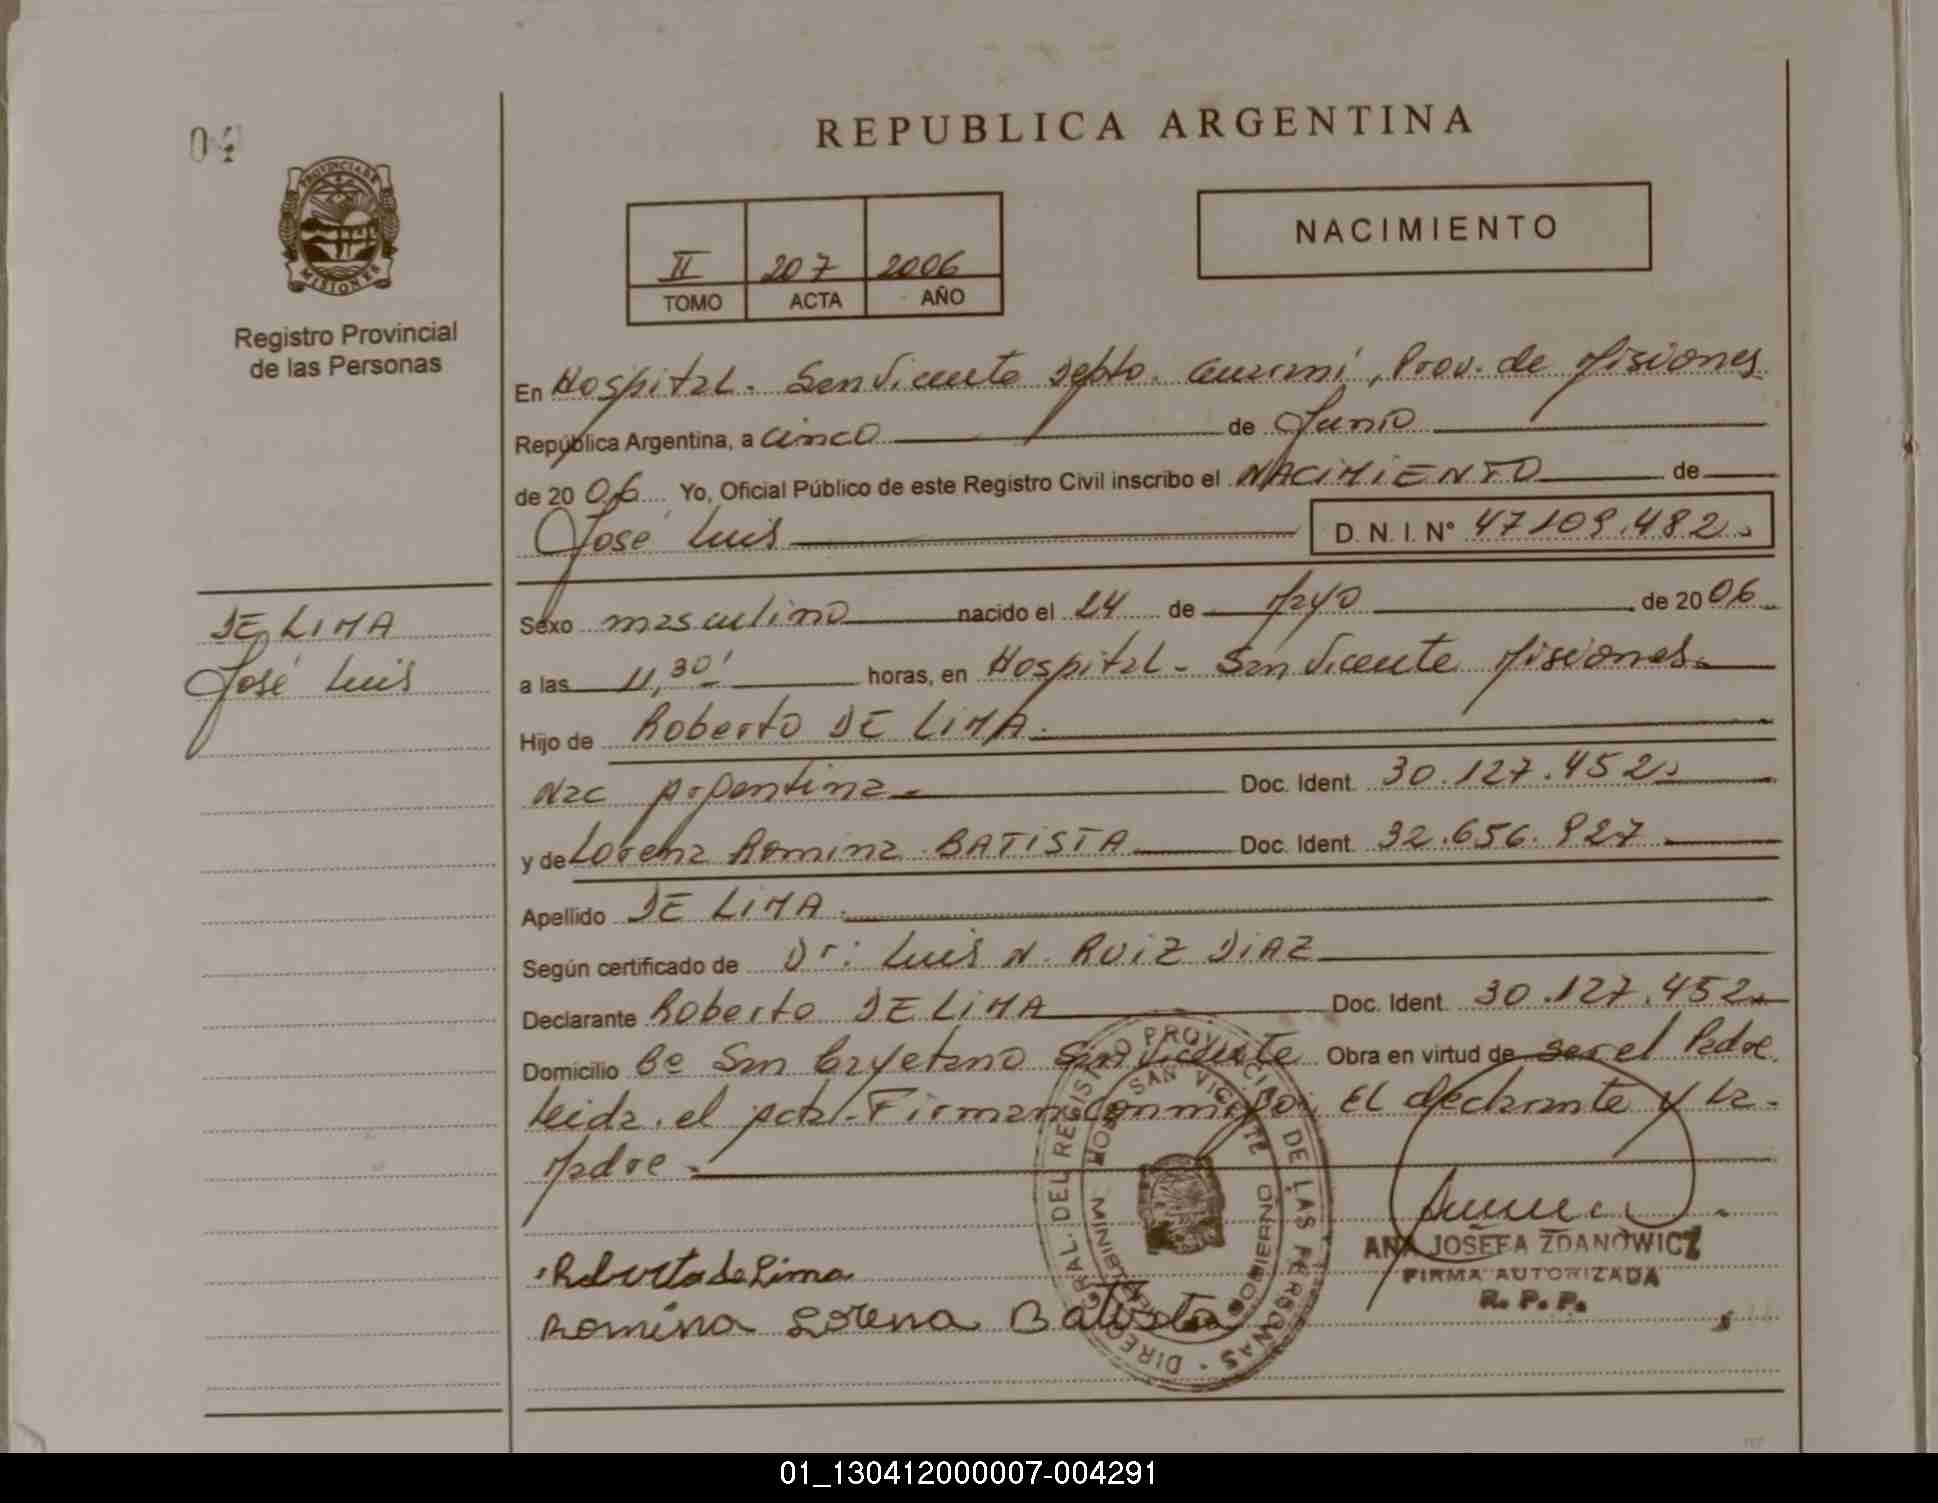 REPUBLICA ARGENTINA
04
PROVINCIA DE
MISIONES
Registro Provincial
de las Personas
II 207 2006
TOMO ACTA AÑO
NACIMIENTO
En Hospital. San Vicente Depto. Guaraní, Prov. de Misiones
República Argentina, a cinco de Junio
de 2006 Yo, Oficial Público de este Registro Civil inscribo el NACIMIENTO de
José Luis D. N. I. N° 47109.482
DE LIMA
José Luis
Sexo masculino nacido el 24 de Mayo de 2006
a las 11,30' horas, en Hospital - San Vicente Misiones.
Hijo de Roberto DE LIMA.
Nac Argentina. Doc. Ident. 30.127.452
y de Lorena Romina BATISTA Doc. Ident. 32.656.927
Apellido DE LIMA.
Según certificado de Dr: Luis N. RUIZ DIAZ
Declarante Roberto DE LIMA Doc. Ident. 30.127.452
Domicilio Bº San Cayetano San Vicente Obra en virtud de ser el Padre
Leida el acta. Firman conmigo: El declarante y La
Madre.
Roberto de Lima
Romina Lorena Batista
DIREC. GRAL. DEL REGISTRO PROVINCIAL DE LAS PERSONAS
HOSP. SAN VICENTE
MINISTERIO GOBIERNO
ANA JOSEFA ZDANOWICZ
FIRMA AUTORIZADA
R. P. P.
01_130412000007-004291